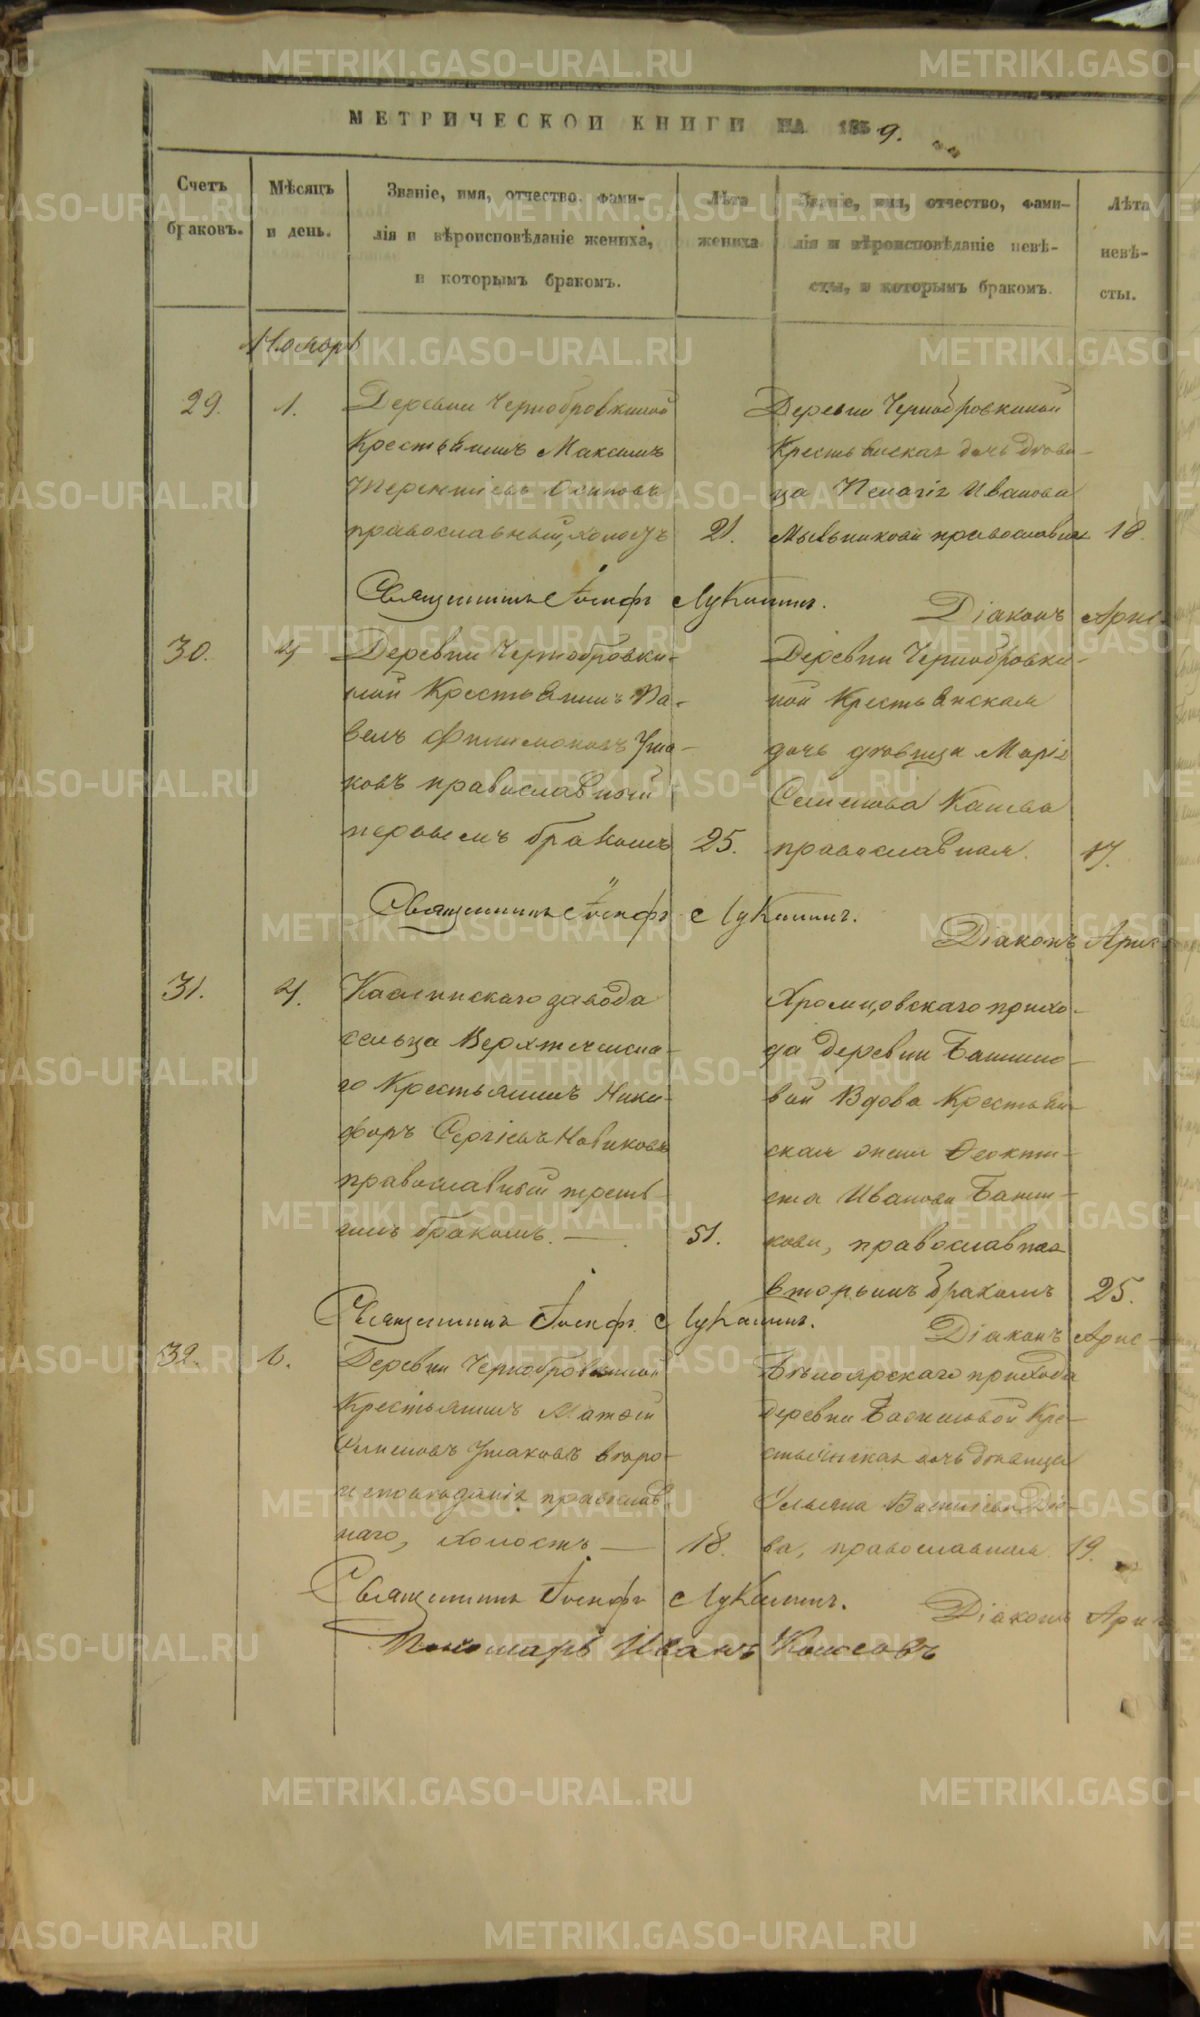 МЕТРИЧЕСКОЙ КНИГИ НА 1859.
Счетъ браковъ.
Мѣсяцъ и день.
Званіе, имя, отчество, фами-
лія и вѣроисповѣданіе жениха,
и которымъ бракомъ.
Лѣта жениха
Званіе, имя, отчество, фами-
лія и вѣроисповѣданіе невѣ-
сты, и которымъ бракомъ.
Лѣта
невѣ-
сты.
Ноябрь
29.
1.
Деревни Чернобровкиной
Крестьянинъ Максимъ
Терентіевъ Осиповъ
православный, холостъ
21.
Деревни Чернобровкиной
Крестьянская дочь дѣви-
ца Пелагія Иванова
Мыльникова православная
18.
Священникъ Іосифъ Лукининъ.
Діаконъ Арис
30.
4
Деревни Чернобровки-
ной Крестьянинъ Па-
велъ Филимоновъ Уша-
ковъ православный
первымъ бракомъ
25.
Деревни Чернобровки-
ной Крестьянская
дочь дѣвица Марія
Семенова
православная.
17.
Священникъ Іосифъ Лукининъ.
Діаконъ Арис
31.
4.
Каслинскаго завода
сельца Верхтечинска-
го Крестьянинъ Ники-
форъ Сергіевъ Новиковъ
православный треть-
имъ бракомъ.
51.
Хромцовскаго прихо-
да деревни
вой Вдова Крестьян-
ская жена Феокти-
ста Иванова
кова, православная
вторымъ бракомъ
25.
Священникъ Іосифъ Лукининъ.
Діаконъ Арис-
32.
6.
Деревни Чернобровкиной
Крестьянинъ Матѳей
Семеновъ Ушаковъ вѣро-
исповѣданія православ-
наго, холостъ
18.
Бѣлоярскаго прихода
деревни Кре-
стьянская дочь дѣвица
Ульяна Василіева
ва, православная.
19.
Священникъ Іосифъ Лукининъ.
Діаконъ Арис
Пономарь Иванъ
METRIKI.GASO-URAL.RU